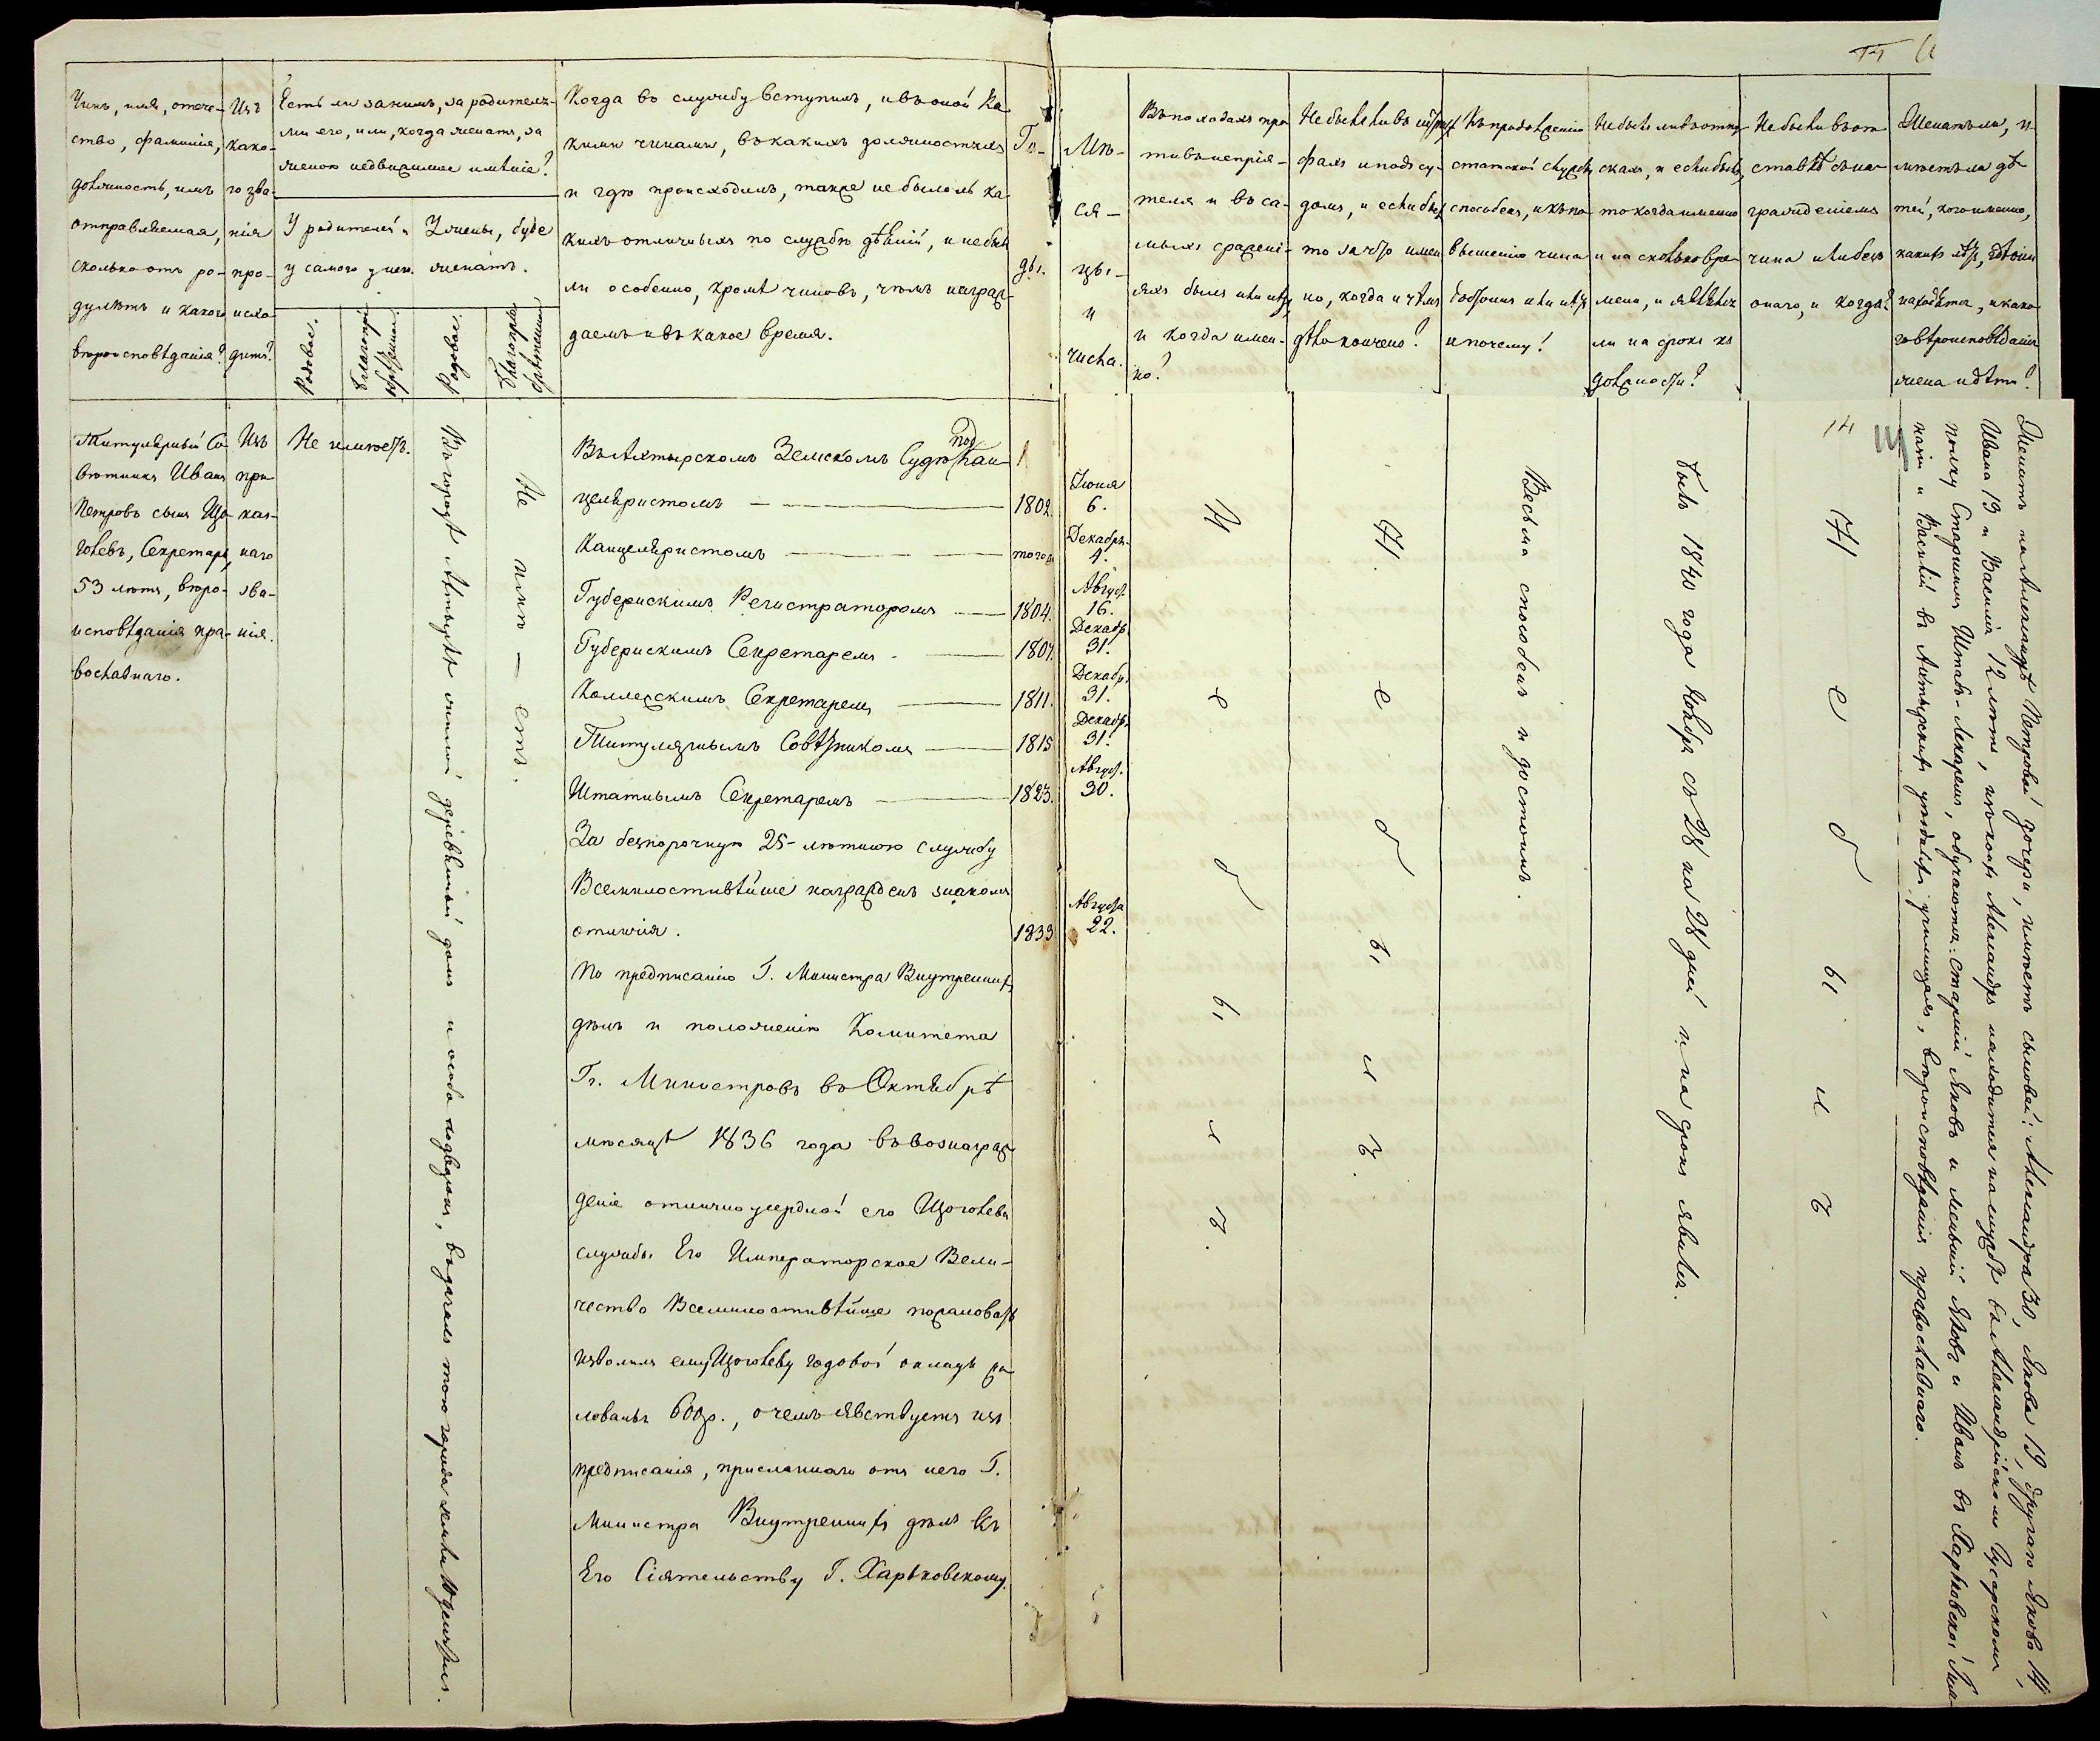 Чинъ, имя, отече-
ство, фамилія,
должность, имъ
отправляемая,
сколько отъ ро-
ду лѣтъ и какого
вѣроисповѣданія?
Изъ
како-
го зва-
нія
про-
исхо-
дитъ?
Есть ли за нимъ, за родителя-
ми его, или, когда женатъ, за
женою недвижимое имѣніе?
У родителей и
у самого у него.
У жены, буде
женатъ.
Родовое.
Благопрі-
обрѣтенное.
Родовое.
Благопрі-
обрѣтенное.
Когда въ службу вступилъ, и въ оной ка-
кими чинами, въ какихъ должностяхъ
и гдѣ происходилъ, также не было ль ка-
кихъ отличныхъ по службѣ дѣяній, и не былъ
ли особенно, кромѣ чиновъ, чѣмъ награж-
даемъ и въ какое время.
Го-
ды.
Мѣ-
ся-
цы-
и
числа.
Въ походахъ про-
тивъ непрія-
теля и въ са-
мыхъ сраженi-
яхъ былъ или нѣтъ,
и когда имен-
но?
Не былъ ли въ штра-
фахъ и подъ су-
домъ, и если былъ,
то за что имен-
но, когда и чѣмъ
дѣло кончено?
Къ продолженію
статской службы
способенъ, и къ по-
вышенію чина
достоинъ или нѣтъ
и почему?
Не былъ ли въ отпу-
скахъ, и если былъ,
то когда именно
и на сколько вре-
мени, и явился
ли на срокъ къ
должности?
Не былъ ли въ от-
ставкѣ съ на-
гражденіемъ
чина или безъ
онаго, и когда?
Женатъ ли, и-
мѣетъ ли дѣ-
тей, кого именно,
какихъ лѣтъ, гдѣ они
находятся, и како-
го вѣроисповѣданія
жена и дѣти?
Титулярный Со-
вѣтникъ Иванъ
Петровъ сынъ Що-
голевъ, Секретарь,
53 лѣтъ, вѣро-
исповѣданія пра-
вославнаго.
Изъ
при-
каз-
наго
зва-
нія.
Не имѣетъ.
Въ городѣ Ахтыркѣ жилой деревянный домъ и особо подворокъ, въ дачахъ того города земли 10 десятинъ.
Не имѣ — етъ.
Въ Ахтырскомъ Земскомъ Судѣ подкан-
целяристомъ — 1802. Іюня 6.
Канцеляристомъ — того ж Декабря 4.
Губернскимъ Регистраторомъ — 1804. Август. 16.
Губернскимъ Секретаремъ — 1807. Декабр. 31.
Коллежскимъ Секретаремъ — 1811. Декабр. 31.
Титулярнымъ Совѣтникомъ — 1815 Декабр. 31.
Штатнымъ Секретаремъ — 1823. Август. 30.
За безпорочную 25-лѣтнюю службу
Всемилостивѣйше награжденъ знакомъ
отличія. 1833 Августа 22.
По предписанію Г. Министра Внутреннихъ
дѣлъ и положенію Комитета
Гг. Министровъ въ Октябрѣ
мѣсяцѣ 1836 года въ вознаграж-
деніе отлично усердной его Щоголева
службы Его Императорское Вели-
чество Всемилостивѣйше пожаловать
изволилъ ему Щоголеву годовой окладъ жа-
лованья 600 р., о чемъ явствуетъ изъ
предписанія, присланнаго отъ него Г.
Министра Внутреннихъ дѣлъ къ
Его Сіятельству Г. Харьковскому
Не былъ.
Не былъ.
Весьма способенъ и достоинъ.
Былъ 1840 года Ноября съ 28 на 28 дней и на срокъ явился.
14
Не былъ
Женатъ на Александрѣ Петровой дочери, имѣетъ сыновей: Александра 30, Якова 19, другаго Якова 14,
Ивана 13 и Василія 12 лѣтъ, изъ коихъ Александръ находится на службѣ въ Александрійскомъ Гусарскомъ
полку Старшимъ Штабъ-Лекаремъ, обучаются: старшій Яковъ и меньшій Яковъ и Иванъ въ Харьковской Гим-
назіи и Василій въ Ахтырскомъ уѣздномъ училищѣ, вѣроисповѣданія православнаго.